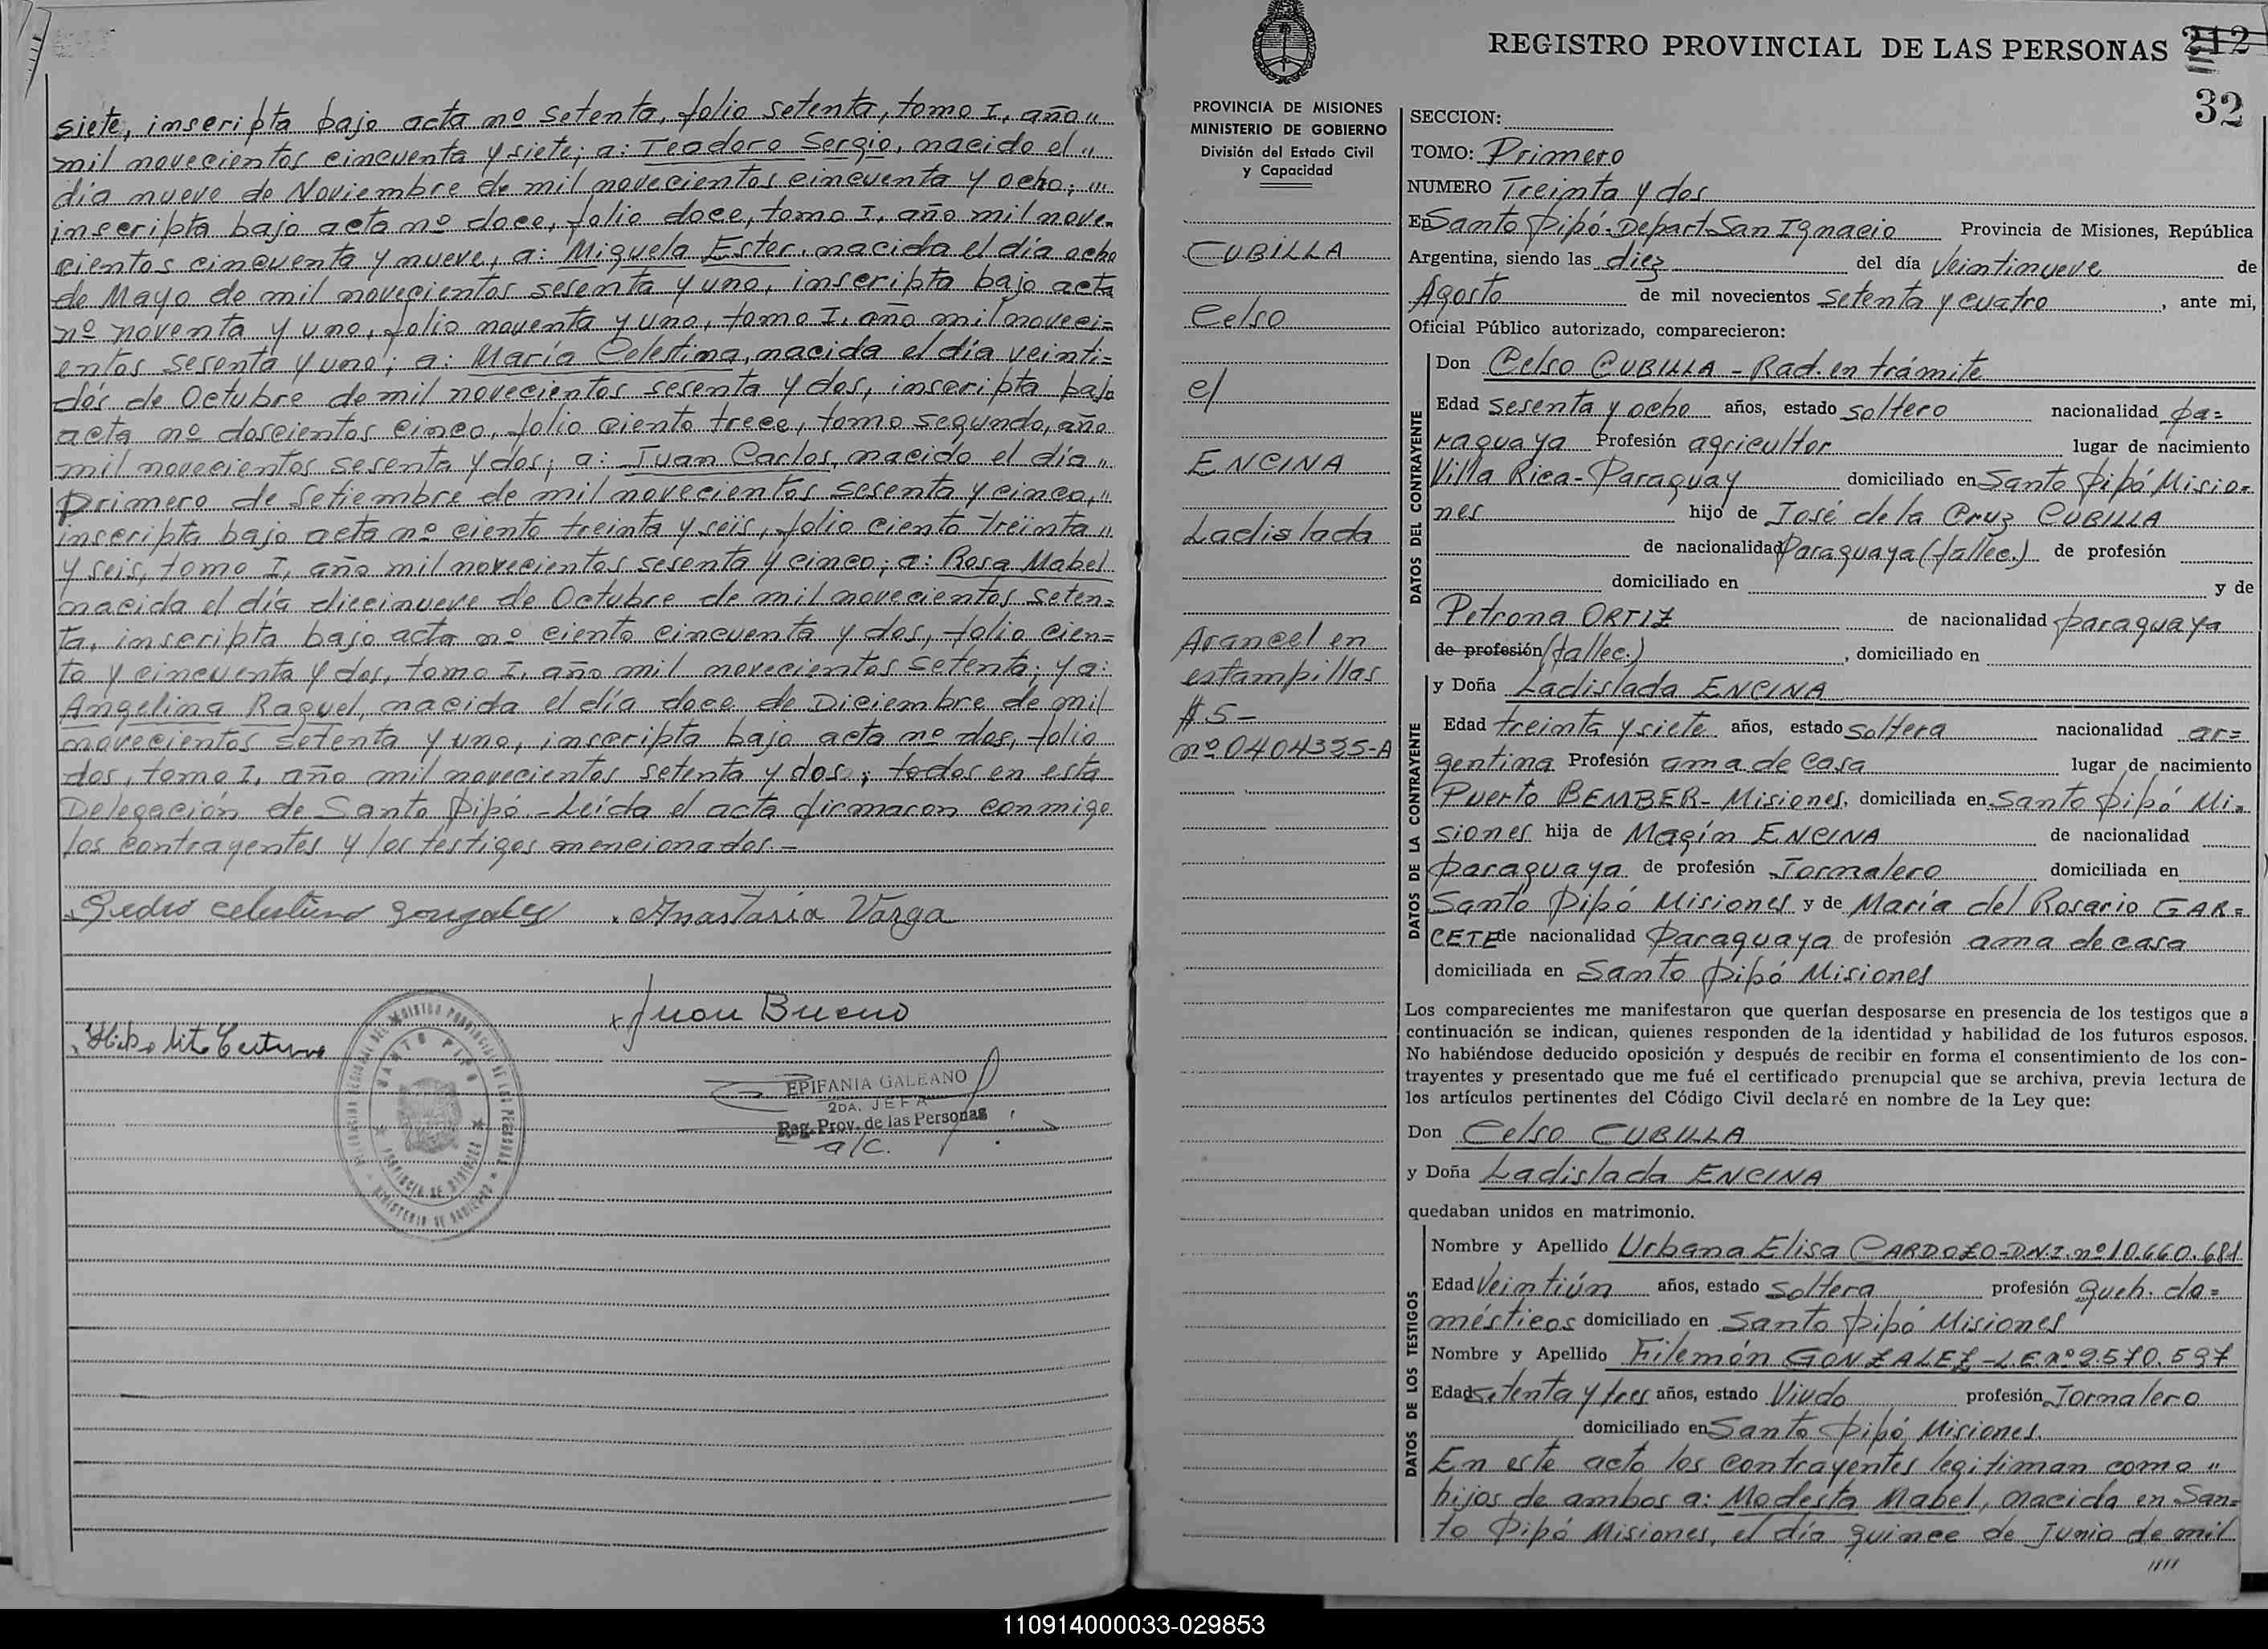 siete, inscripta bajo acta nº setenta, folio setenta, tomo I, año "
mil novecientos cincuenta y siete; a: Teodoro Sergio, nacido el "
día nueve de Noviembre de mil novecientos cincuenta y ocho; "'
inscripta bajo acta nº doce, folio doce, tomo I, año mil nove-
cientos cincuenta y nueve, a: Miguela Ester, nacida el día ocho
de Mayo de mil novecientos sesenta y uno, inscripta bajo acta
nº noventa y uno, folio noventa y uno, tomo I, año mil noveci=
entos sesenta y uno; a: María Celestina, nacida el día veinti=
dós de Octubre de mil novecientos sesenta y dos, inscripta bajo
acta nº doscientos cinco, folio ciento trece, tomo segundo, año
mil novecientos sesenta y dos; a: Juan Carlos, nacido el día "
primero de Setiembre de mil novecientos sesenta y cinco, "
inscripta bajo acta nº ciento treinta y seis, folio ciento treinta "
y seis, tomo I, año mil novecientos sesenta y cinco; a: Rosa Mabel
nacida el día diecinueve de Octubre de mil novecientos seten=
ta, inscripta bajo acta nº ciento cincuenta y dos, folio cien=
to y cincuenta y dos, tomo I, año mil novecientos setenta; y a:
Angelina Raquel, nacida el día doce de Diciembre de mil
novecientos setenta y uno, inscripta bajo acta nº dos, folio
dos, tomo I, año mil novecientos setenta y dos; todos en esta
Delegación de Santo Pipó.- Leída el acta firmaron conmigo
los contrayentes y los testigos mencionados.-
Pedro Celestino Gonzalez . Anastasia Varga
x Juan Bueno
SANTO PIPÓ
PROVINCIA DE MISIONES
MINISTERIO DE GOBIERNO
EPIFANIA GALEANO
2DA. JEFA
Reg. Prov. de las Personas
a/c.
REGISTRO PROVINCIAL DE LAS PERSONAS 212
32
PROVINCIA DE MISIONES
MINISTERIO DE GOBIERNO
División del Estado Civil
y Capacidad
CUBILLA
Celso
c/
ENCINA
Ladislada
Arancel en
estampillas
$ 5-
nº 0404335-A
SECCION:
TOMO: Primero
NUMERO Treinta y dos
En Santo Pipó-Depart. San Ignacio Provincia de Misiones, República
Argentina, siendo las diez del día Veintinueve de
Agosto de mil novecientos setenta y cuatro, ante mi,
Oficial Público autorizado, comparecieron:
DATOS DEL CONTRAYENTE
Don Celso CUBILLA - Rad. en trámite
Edad sesenta y ocho años, estado soltero nacionalidad pa=
raguaya Profesión agricultor lugar de nacimiento
Villa Rica-Paraguay domiciliado en Santo Pipó Misio=
nes hijo de José de la Cruz CUBILLA
de nacionalidad Paraguaya (fallec.) de profesión
domiciliado en y de
Petrona ORTIZ de nacionalidad paraguaya
de profesión (fallec.), domiciliado en
DATOS DE LA CONTRAYENTE
y Doña Ladislada ENCINA
Edad treinta y siete años, estado soltera nacionalidad ar=
gentina Profesión ama de casa lugar de nacimiento
Puerto BEMBER- Misiones, domiciliada en Santo Pipó Mi=
siones hija de Magín ENCINA de nacionalidad
paraguaya de profesión Jornalero domiciliada en
Santo Pipó Misiones y de María del Rosario GAR=
CETE de nacionalidad Paraguaya de profesión ama de casa
domiciliada en Santo Pipó Misiones
Los comparecientes me manifestaron que querían desposarse en presencia de los testigos que a
continuación se indican, quienes responden de la identidad y habilidad de los futuros esposos.
No habiéndose deducido oposición y después de recibir en forma el consentimiento de los con-
trayentes y presentado que me fué el certificado prenupcial que se archiva, previa lectura de
los artículos pertinentes del Código Civil declaré en nombre de la Ley que:
Don Celso CUBILLA
y Doña Ladislada ENCINA
quedaban unidos en matrimonio.
DATOS DE LOS TESTIGOS
Nombre y Apellido Urbana Elisa CARDOZO-DN.I. nº 10.660.681
Edad Veintiún años, estado soltera profesión queh. do=
mésticos domiciliado en Santo Pipó Misiones
Nombre y Apellido Filemón GONZALEZ-L.E. nº 2.570.597
Edad setenta y tres años, estado Viudo profesión Jornalero
domiciliado en Santo Pipó Misiones.
En este acto los contrayentes legitiman como "
hijos de ambos a: Modesta Mabel, nacida en San=
to Pipó Misiones, el día quince de Junio de mil
""
110914000033-029853